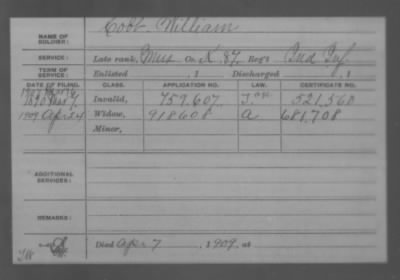 Cobb William
NAME OF SOLDIER:
SERVICE: Late rank, Mus Co. K, 87, Reg't Ind Inf.
TERM OF SERVICE: Enlisted , 1 Discharged , 1
DATE OF FILING. CLASS. APPLICATION NO. LAW. CERTIFICATE NO.
1890 Invalid, 759.607 521,560
1909 Apr 24 Widow, 918608 a 681,708
Minor,
ADDITIONAL SERVICES:
REMARKS:
Died Apr 7 , 1909, at